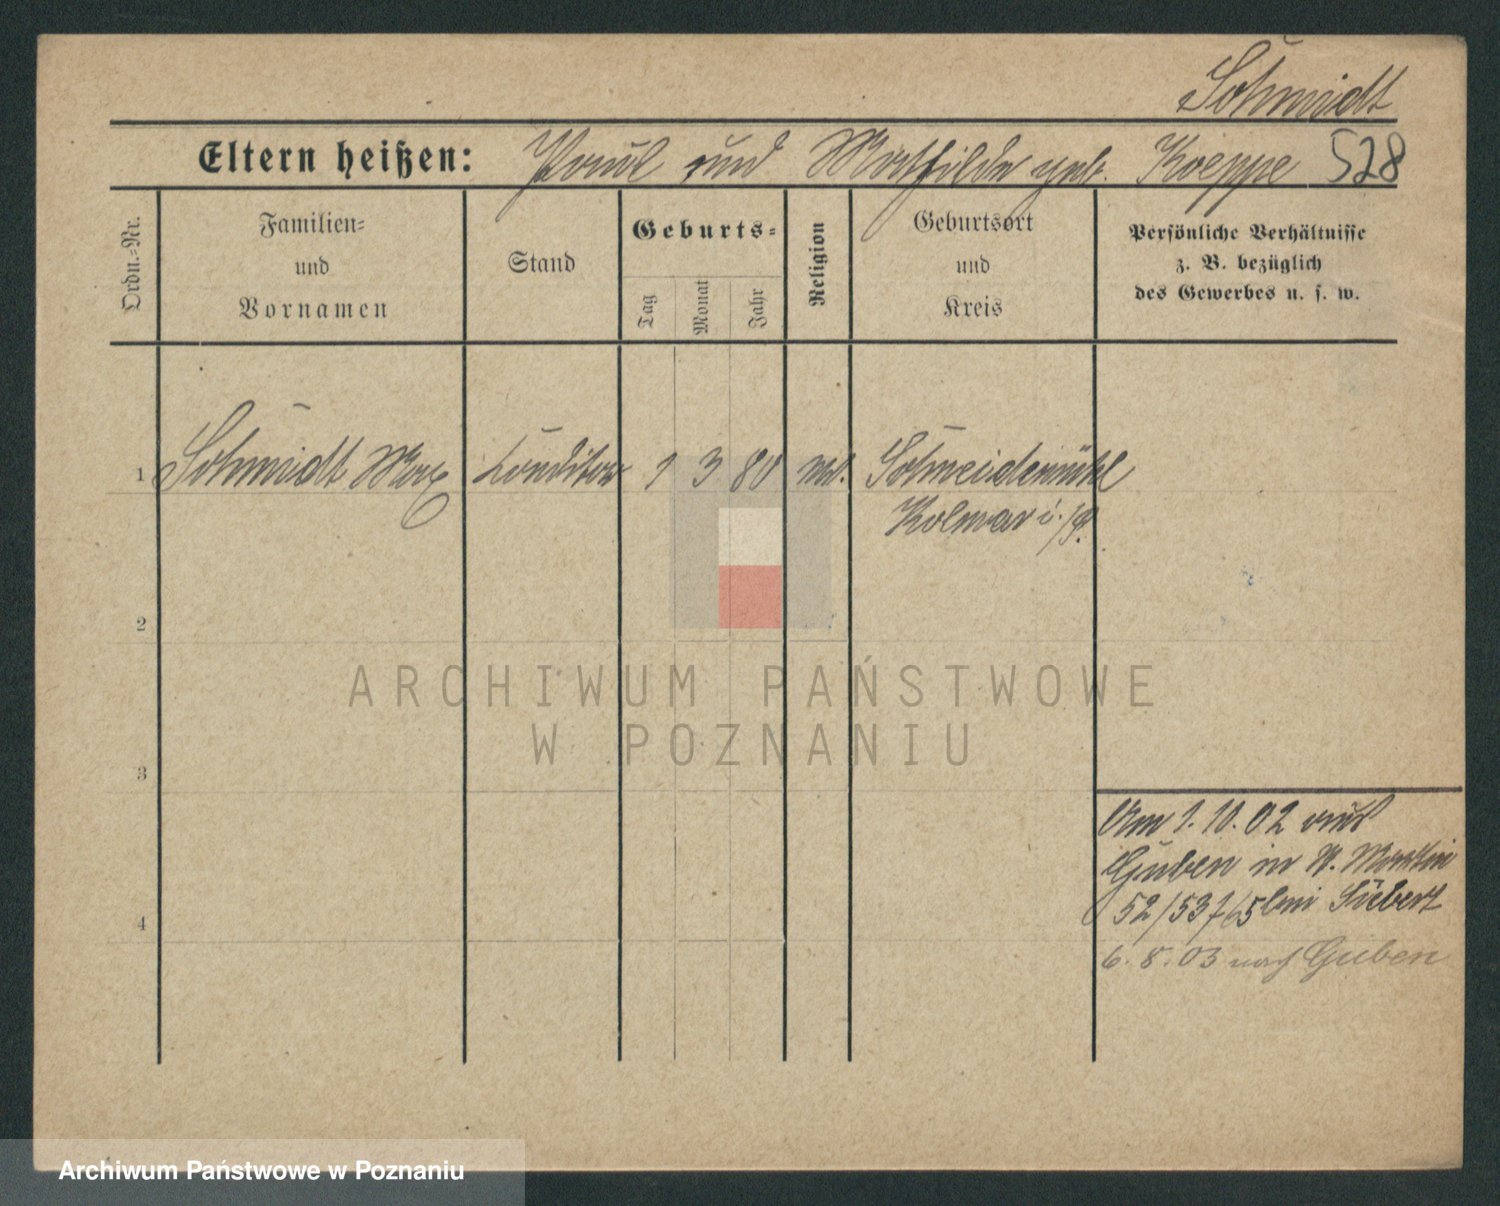 Schmidt
Eltern heißen: Paul und Mathilde geb. Koeppe 528
Ordn.-Nr.
Familien-
und
Vornamen
Stand
Geburts-
Tag
Monat
Jahr
Religion
Geburtsort
und
Kreis
Persönliche Verhältnisse
z. B. bezüglich
des Gewerbes u. s. w.
1 Schmidt Max Conditor 1 3 80 Schneidemühl
Kolmar i./P.
2
3
4
Am 1.10.02 aus
Guben in St. Martin
52/53 bei Siebert
6.8.03 nach Guben
ARCHIWUM PAŃSTWOWE
W POZNANIU
Archiwum Państwowe w Poznaniu